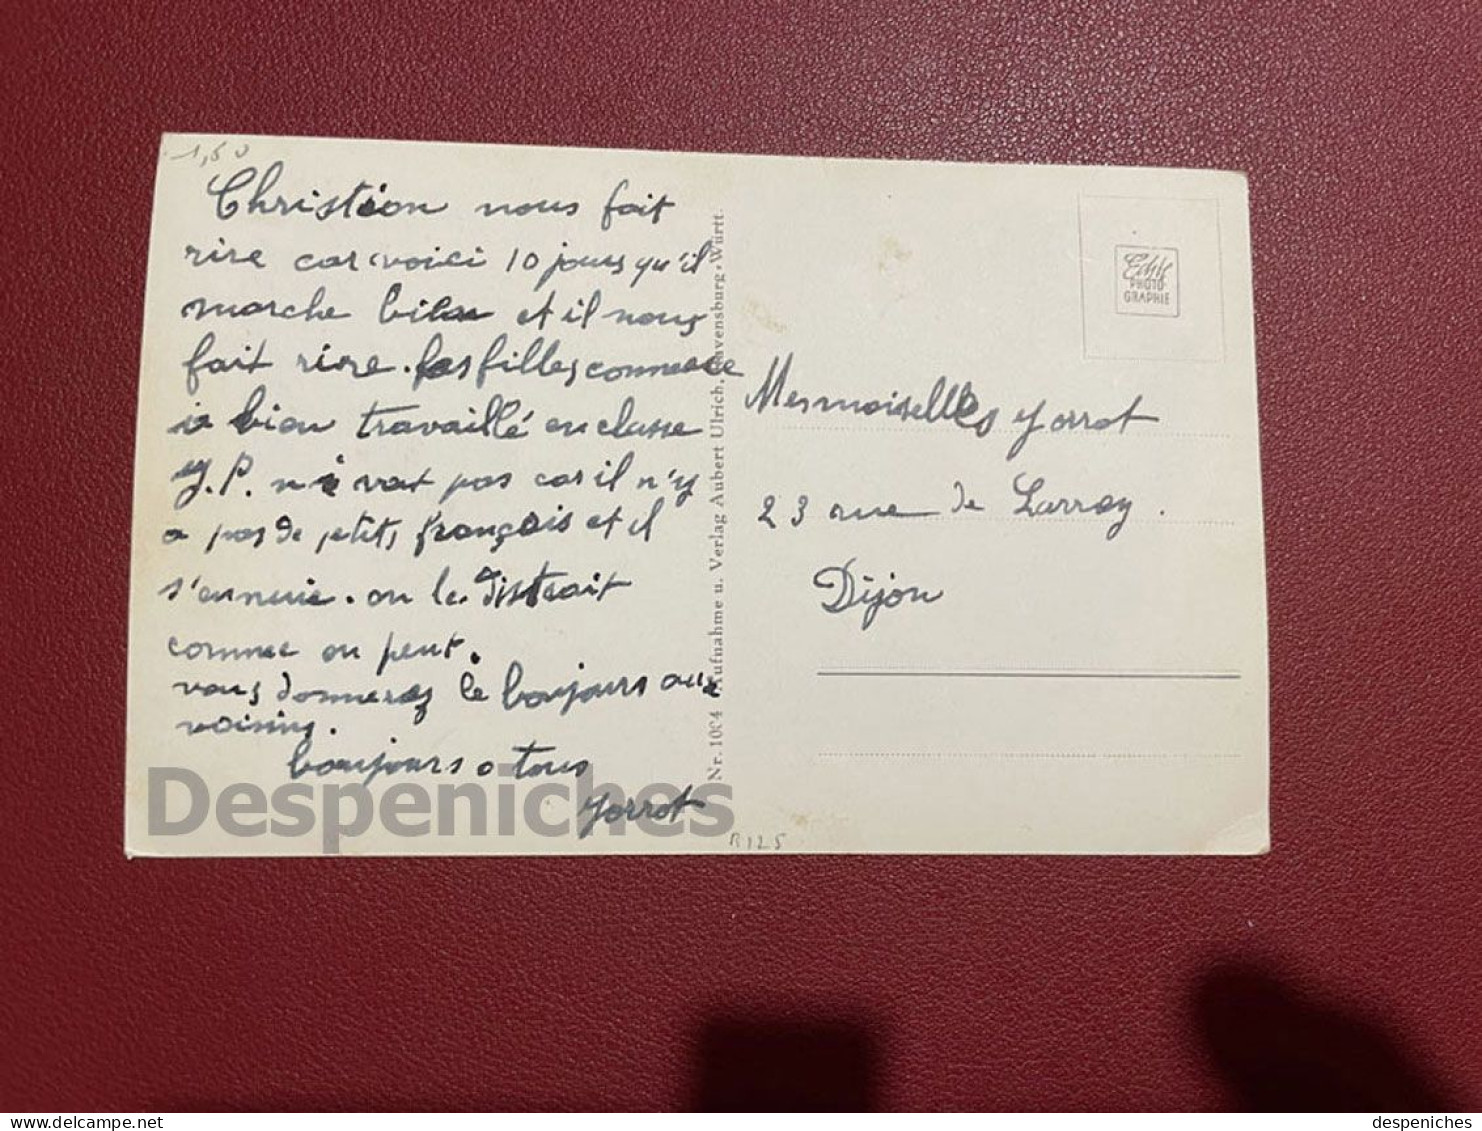 1,50
Christian nous fait
rire car voici 10 jours qu'il
marche bien et il nous
fait rire. les filles comence
a bien travaillé en classe
J.P. n'i vat pas car il n'y
a pas de petits français et il
s'ennuie. on le distrait
comme on peut.
vous donnerez le bonjours aux
voisins.
bonjours a tous
Yorrot
Nr. 1004 Aufnahme u. Verlag Aubert Ulrich, Ravensburg-Württ.
Echte
PHOTO-
GRAPHIE
Mesmoiselles Yorrot
23 rue de Larrey.
Dijon
R125
Despeniches
delcampe.net
despeniches